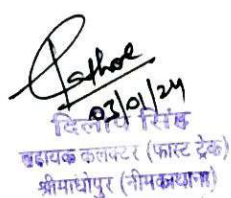 Rathore
03/01/24
दिलीप सिंह
सहायक कलक्टर (फास्ट ट्रेक)
श्रीमाधोपुर (नीमकाथाना)